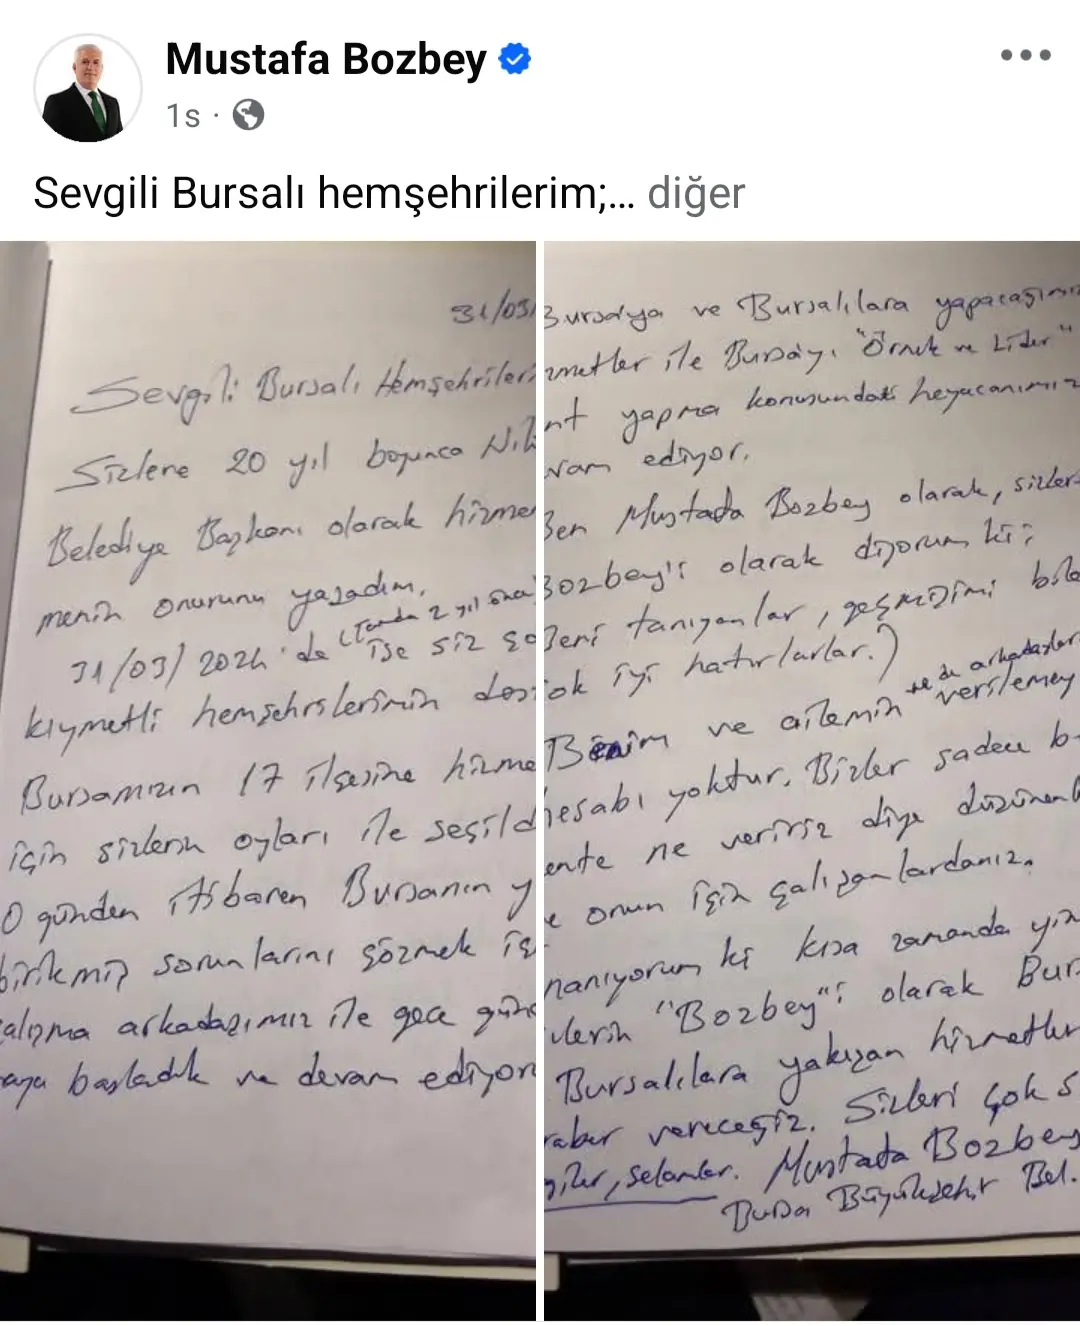 Mustafa Bozbey
1s ·
Sevgili Bursalı hemşehrilerim;... diğer
31/03/
Sevgili Bursalı Hemşehrileri
Sizlere 20 yıl boyunca Nil
Belediye Başkanı olarak hizme
menin onurunu yaşadım.
31/03/2024'de (Tamda 2 yıl önce
ise siz ço
kıymetli hemşehrilerimin des
Bursamızın 17 ilçesine hizme
için sizlerin oyları ile seçild
O günden itibaren Bursanın y
birikmiş sorunlarını çözmek iç
çalışma arkadaşımız ile gece gün
başladık ve devam ediyor
Bursa'ya ve Bursalılara yapacağımız
zmetler ile Bursayı "Örnek ve Lider"
nt yapma konusundaki heyecanımız
vam ediyor.
Ben Mustafa Bozbey olarak, sizler
Bozbey'i olarak diyorum ki;
Beni tanıyanlar, geçmişimi bile
çok iyi hatırlarlar.)
Benim ve ailemin ve arkadaşlar
verilemey
hesabı yoktur. Bizler sadece b
ente ne veririz diye düşünen
ve onun için çalışanlardanız.
nanıyorum ki kısa zamanda yin
zlerin "Bozbey"i olarak Bur
Bursalılara yakışan hizmetler
raber vereceğiz. Sizleri çok s
giler, selamlar. Mustafa Bozbey
Bursa Büyükşehir Bel.